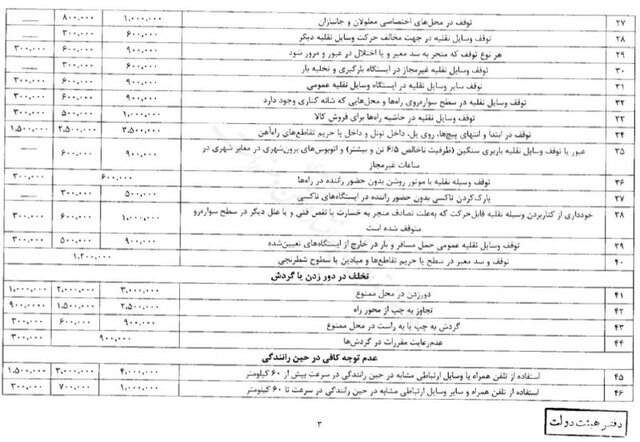 ۲۷ توقف در محل‌های اختصاصی معلولان و جانبازان ۱،۰۰۰،۰۰۰ ۸۰۰،۰۰۰ ——
۲۸ توقف وسایل نقلیه در جهت مخالف حرکت وسایل نقلیه دیگر ۶۰۰،۰۰۰ ۳۰۰،۰۰۰ ——
۲۹ هر نوع توقف که منجر به سد معبر و یا اختلال در عبور و مرور شود ۹۰۰،۰۰۰ ۶۰۰،۰۰۰ ۳۰۰،۰۰۰
۳۰ توقف وسایل نقلیه غیرمجاز در ایستگاه بارگیری و تخلیه بار ۶۰۰،۰۰۰ ۳۰۰،۰۰۰ ——
۳۱ توقف سایر وسایل نقلیه در ایستگاه وسایل نقلیه عمومی ۹۰۰،۰۰۰ ۶۰۰،۰۰۰ ۳۰۰،۰۰۰
۳۲ توقف وسایل نقلیه در سطح سواره‌روی راه‌ها و محل‌هایی که شانه کناری وجود دارد ۹۰۰،۰۰۰ ۶۰۰،۰۰۰ ۳۰۰،۰۰۰
۳۳ توقف وسایل نقلیه در حاشیه راه‌ها برای فروش کالا ۱،۰۰۰،۰۰۰ ۵۰۰،۰۰۰ ۳۰۰،۰۰۰
۳۴ توقف در ابتدا و انتهای پیچ‌ها، روی پل، داخل تونل و داخل یا حریم تقاطع‌های راه‌آهن ۳،۵۰۰،۰۰۰ ۲،۵۰۰،۰۰۰ ۱،۵۰۰،۰۰۰
۳۵ عبور یا توقف وسایل نقلیه باربری سنگین (ظرفیت ناخالص ۶/۵ تن و بیشتر) و اتوبوس‌های برون‌شهری در معابر شهری در ۹۰۰،۰۰۰ ۶۰۰،۰۰۰ ——
ساعات غیرمجاز
۳۶ توقف وسیله نقلیه با موتور روشن بدون حضور راننده در راه‌ها ۶۰۰،۰۰۰ ۳۰۰،۰۰۰
۳۷ پارک‌کردن تاکسی بدون حضور راننده در ایستگاه‌های تاکسی ۵۰۰،۰۰۰ ۳۰۰،۰۰۰ ——
۳۸ خودداری از کناربردن وسیله نقلیه قابل‌حرکت که به‌علت تصادف منجر به خسارت یا نقص فنی و یا علل دیگر در سطح سواره‌رو ۱،۰۰۰،۰۰۰ ۶۰۰،۰۰۰ ۳۰۰،۰۰۰
متوقف شده است
۳۹ توقف وسایل نقلیه عمومی حمل مسافر و بار در خارج از ایستگاه‌های تعیین‌شده ۹۰۰،۰۰۰ ۵۰۰،۰۰۰ ۳۰۰،۰۰۰
۴۰ توقف و سد معبر در سطح یا حریم تقاطع‌ها و میادین با سطوح شطرنجی ۱،۲۰۰،۰۰۰
تخلف در دور زدن یا گردش
۴۱ دورزدن در محل ممنوع ۳،۰۰۰،۰۰۰ ۲،۰۰۰،۰۰۰ ۱،۰۰۰،۰۰۰
۴۲ تجاوز به چپ از محور راه ۲،۵۰۰،۰۰۰ ۱،۵۰۰،۰۰۰ ۹۰۰،۰۰۰
۴۳ گردش به چپ یا به راست در محل ممنوع ۹۰۰،۰۰۰ ۶۰۰،۰۰۰ ۳۰۰،۰۰۰
۴۴ عدم‌رعایت مقررات در گردش‌ها ۹۰۰،۰۰۰ ۳۰۰،۰۰۰
عدم توجه کافی در حین رانندگی
۴۵ استفاده از تلفن همراه یا وسایل ارتباطی مشابه در حین رانندگی در سرعت بیش از ۶۰ کیلومتر ۴،۰۰۰،۰۰۰ ۳،۰۰۰،۰۰۰ ۱،۵۰۰،۰۰۰
۴۶ استفاده از تلفن همراه و سایر وسایل ارتباطی مشابه در حین رانندگی در سرعت تا ۶۰ کیلومتر ۱،۰۰۰،۰۰۰ ۷۰۰،۰۰۰ ۳۰۰،۰۰۰
دفتر هیئت دولت
۳